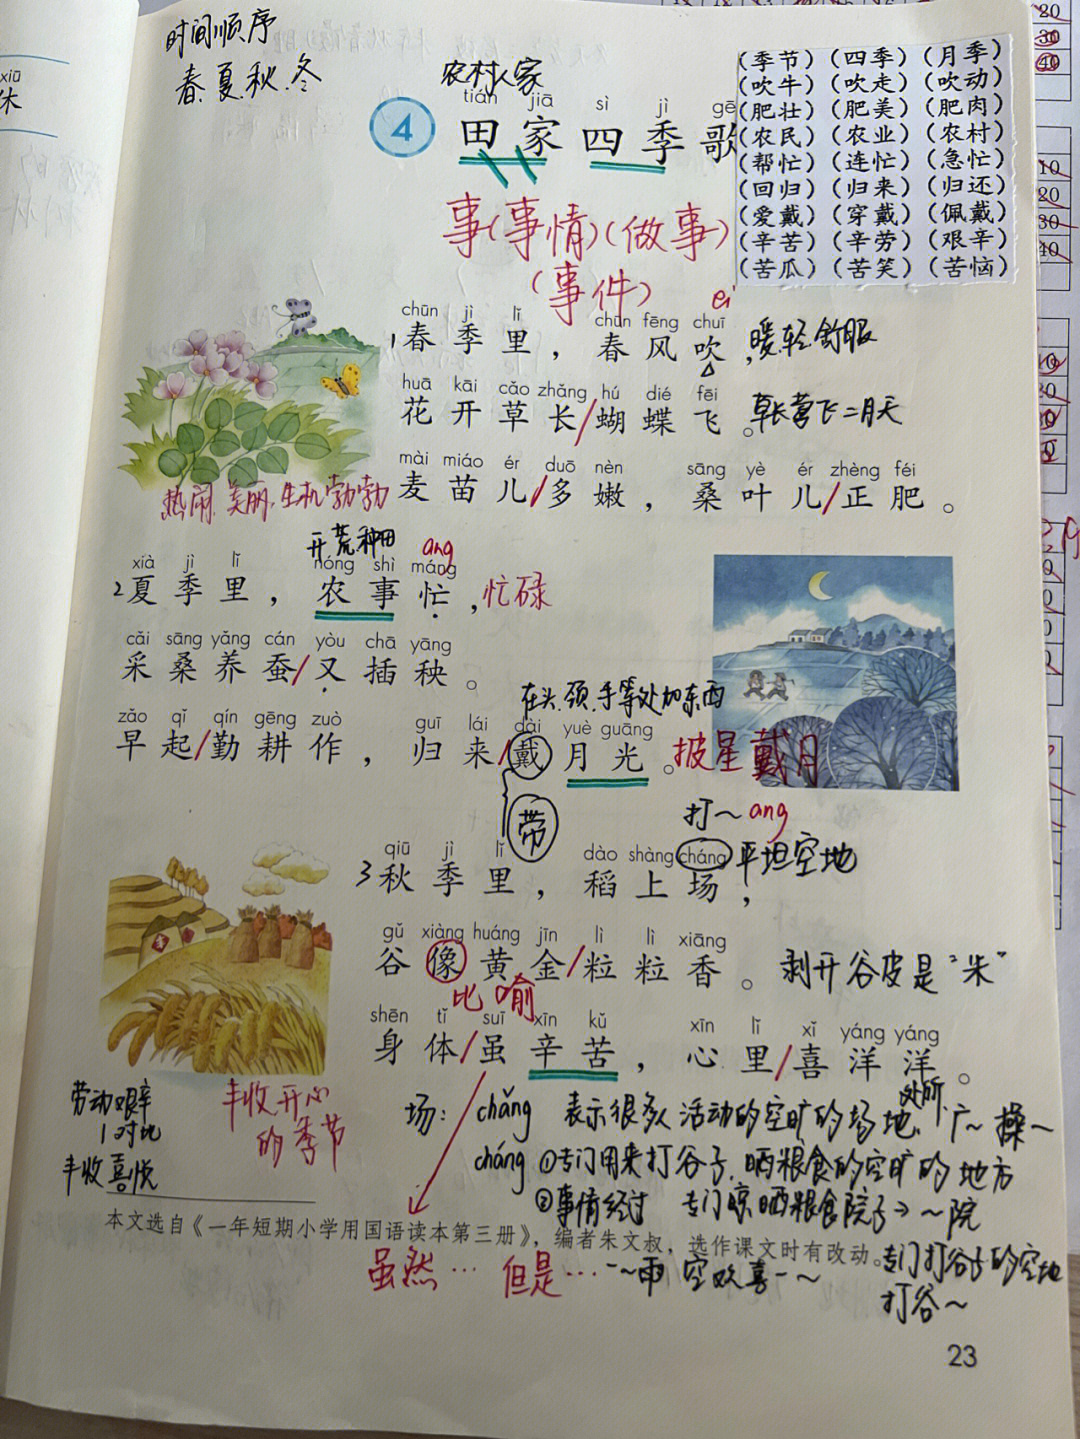 时间顺序
春、夏、秋、冬
农村人家
tián jiā sì jì gē
4 田家四季歌
(季节) (四季) (月季)
(吹牛) (吹走) (吹动)
(肥壮) (肥美) (肥肉)
(农民) (农业) (农村)
(帮忙) (连忙) (急忙)
(回归) (归来) (归还)
(爱戴) (穿戴) (佩戴)
(辛苦) (辛劳) (艰辛)
(苦瓜) (苦笑) (苦恼)
事(事情)(做事)
(事件)
ei
chūn jì lǐ chūn fēng chuī
1春季里，春风吹， 暖、轻、舒服
huā kāi cǎo zhǎng hú dié fēi
花开草长/蝴蝶飞。 草长莺飞二月天
mài miáo ér duō nèn sāng yè ér zhèng féi
麦苗儿/多嫩，桑叶儿/正肥。
热闹、美丽、生机勃勃
开荒种田 ang
xià jì lǐ nóng shì máng
2夏季里，农事忙， 忙碌
cǎi sāng yǎng cán yòu chā yāng
采桑养蚕/又插秧。
在头、颈、手等处加东西
zǎo qǐ qín gēng zuò guī lái dài yuè guāng
早起/勤耕作，归来/戴月光。 披星戴月
带
打～ ang
qiū jì lǐ dào shàng cháng 平坦空地
3秋季里，稻上场，
gǔ xiàng huáng jīn lì lì xiāng
谷像黄金/粒粒香。 剥开谷皮是“米”
比喻
shēn tǐ suī xīn kǔ xīn lǐ xǐ yáng yáng
身体/虽辛苦，心里/喜洋洋。
劳动艰辛
对比
丰收喜悦
丰收开心
的季节
场： chǎng 表示很多人活动的空旷的场地、处所 广～ 操～
cháng ①专门用来打谷子、晒粮食的空旷的地方
②事情经过 专门晾晒粮食院子→～院
本文选自《一年短期小学用国语读本第三册》，编者朱文叔，选作课文时有改动。
虽然… 但是… 一～雨 空欢喜一～
专门打谷子的空地
打谷～
23
xiū
休